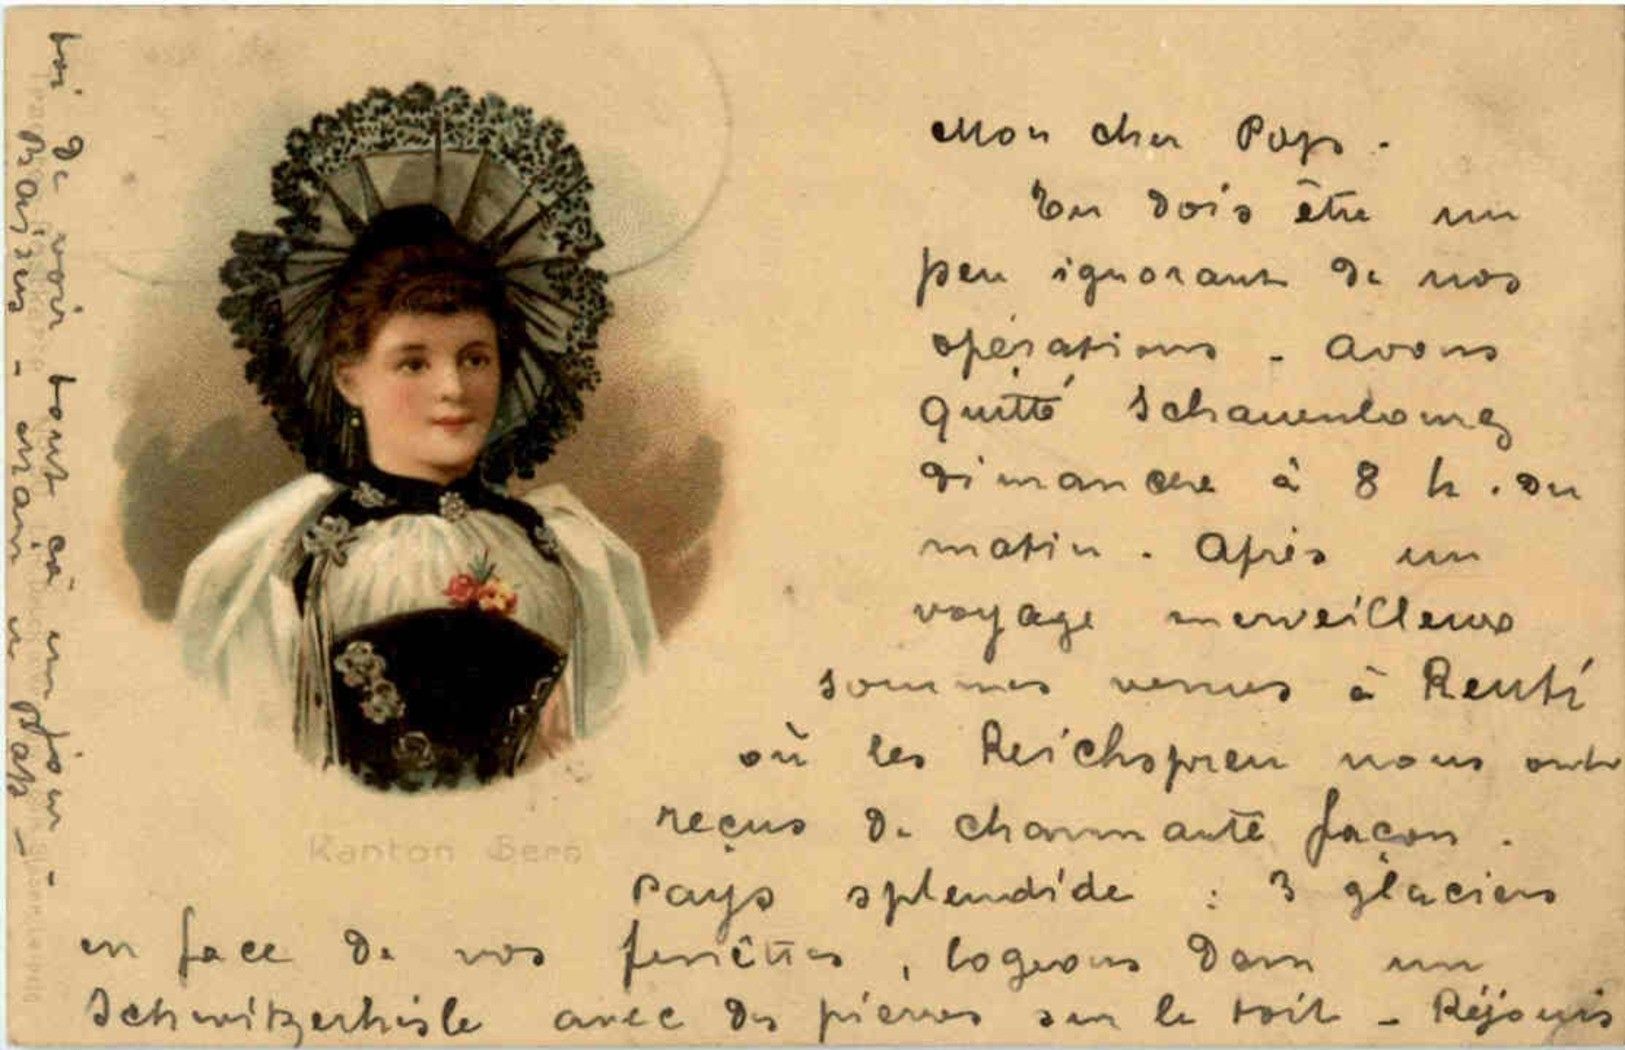 Mon cher Pops.
Tu dois être un
peu ignorant de nos
opérations - avons
quitté Schauenbourg
dimanche à 8 h. du
matin. Après un
voyage merveilleux
sommes venus à Reuti
où les Reichspreu nous ont
reçus de charmante façon.
Pays splendide : 3 glaciers
en face de nos fenêtres, logeons dans un
Schwitzerhisle avec des pierres sur le toit - Réjouis
toi de voir tout çà un jour -
Baisers -
Kanton Bern